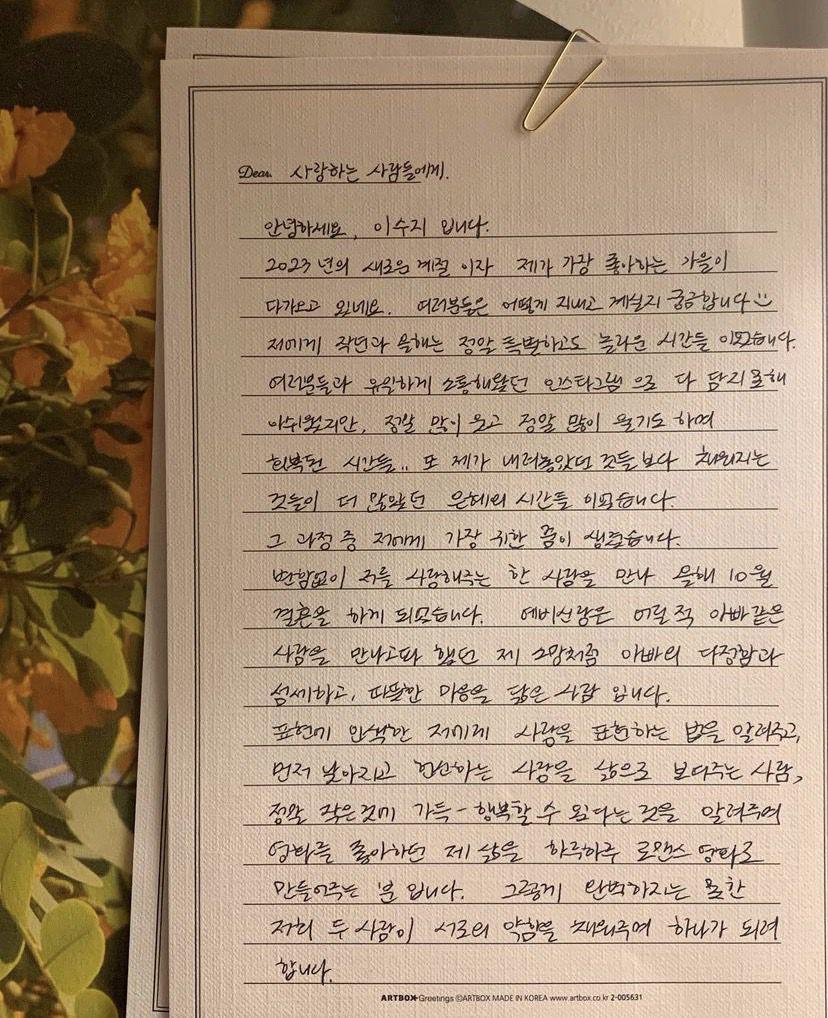 Dear. 사랑하는 사람들에게.
안녕하세요, 이수지 입니다.
2023년의 새로운 계절 이자 제가 가장 좋아하는 가을이
다가오고 있네요. 여러분들은 어떻게 지내고 계실지 궁금합니다
저에게 작년과 올해는 정말 특별하고도 놀라운 시간들 이였습니다.
여러분들과 유일하게 소통해왔던 인스타그램 으로 다 담지 못해
아쉬웠지만, 정말 많이 웃고 정말 많이 울기도 하며
회복된 시간들.. 또 제가 내려놓았던 것들 보다 채워지는
것들이 더 많았던 은혜의 시간들 이였습니다.
그 과정 중 저에게 가장 귀한 꿈이 생겼습니다.
변함없이 저를 사랑해주는 한 사람을 만나 올해 10월
결혼을 하게 되었습니다. 예비신랑은 어릴 적 아빠같은
사람을 만나고파 했던 제 소망처럼 아빠의 다정함과
섬세하고, 따뜻한 마음을 닮은 사람 입니다.
표현에 인색한 저에게 사랑을 표현하는 법을 알려주고,
먼저 낮아지고 헌신하는 사랑을 삶으로 보여주는 사람,
정말 작은것에 가득-행복할 수 있다는 것을 알려주며
영화를 좋아하던 제 삶을 하루하루 로맨스 영화로
만들어주는 분 입니다. 그렇게 완벽하지는 못한
저희 두 사람이 서로의 약함을 채워주며 하나가 되려
합니다.
ARTBOX Greetings ⓒARTBOX MADE IN KOREA www.artbox.co.kr 2-005631